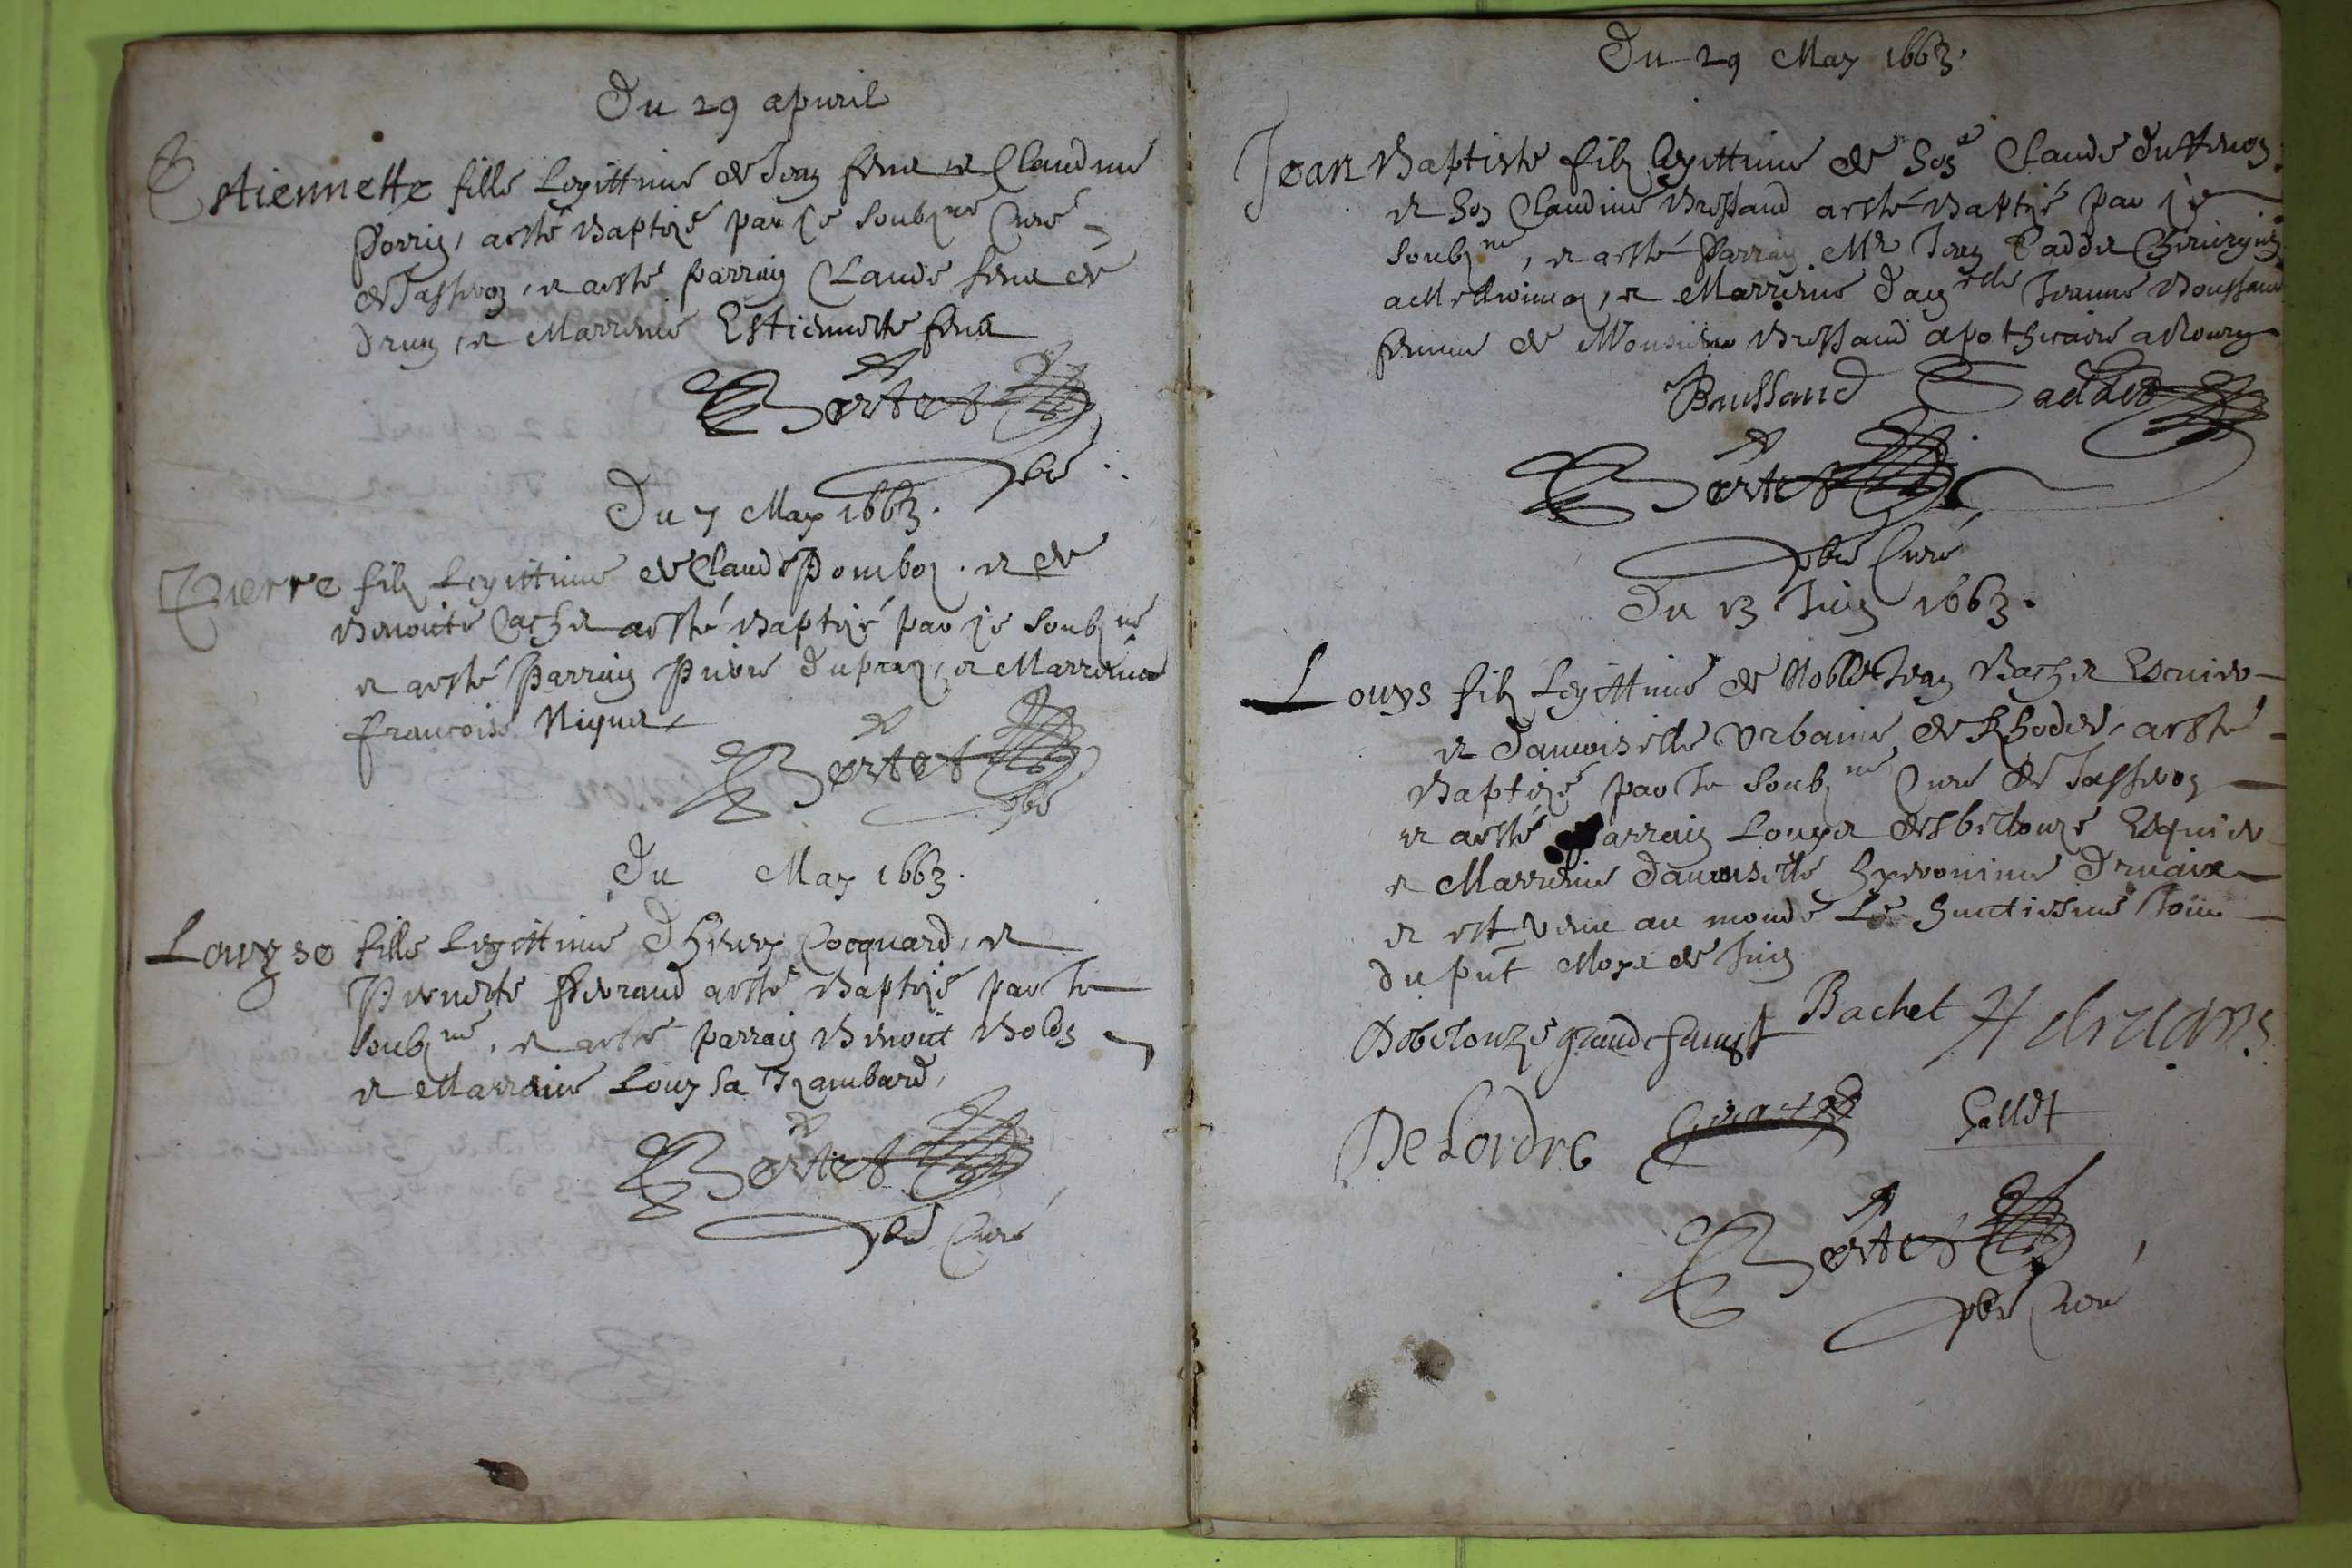 Du 29 apuril
Estiennette fille Legittime de Jean fena et Claudine
Perrin, aesté Baptizé par je soubzné Curé
de Jasseron, et aesté parrain Claude fena de
Drun, et Marrene Estiennette fena
Bertet
pbre
Du 7 May 1663.
Pierre filz Legittime de Claude Pomboz. et de
Benoite Cachet aesté Baptizé par je soubzné
et aesté Parrain Pierre Dupraz, et Marrene
francoise Niquet
Bertet
pbre
Du May 1663.
Louyse fille Legittime D'henry Cocquard, et
Pernette Peyraud aesté Baptizé par Je
soubzné, et aesté parrain Benoit
et Marraine Louysa Rambard,
Bertet
pbre Curé
Du 29 May 1663.
Jean Baptiste filz legittime de Claude
et Claudine Bressand aesté Baptizé par je
soubzné, et aesté Parrain Mr Jean Cadder Chirurgien
, et Marrene Dam.elle Jeanne
femme de Monsieur Bressand apothicaire a Bourg
Bressand Cadder
Bertet
pbre Curé
Du 13 Juin 1663.
Louys filz Legittime de Noble Jean Bachet Escuier
et Damoiselle Urbaine de Rhodes, aesté
Baptizé par Je soubzné Curé de Jasseron
et aesté Parrain Louys Esquier
et Marrene Damoiselle hyeronime Druaix
et est venu au monde Le huictiesme Jour
du pnt Moys de Juin
Bachet
DeLordre Gallet
Bertet
pbre Curé